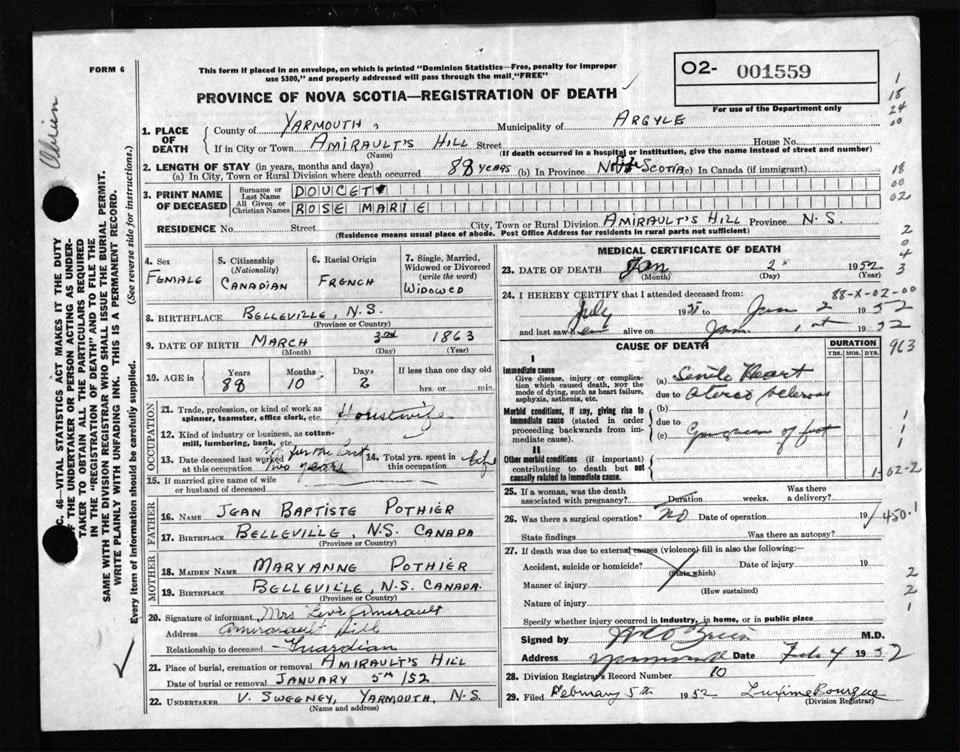 FORM 6
This form if placed in an envelope, on which is printed "Dominion Statistics—Free, penalty for improper
use $300," and properly addressed will pass through the mail "FREE"
O2- 001559
For use of the Department only
PROVINCE OF NOVA SCOTIA—REGISTRATION OF DEATH
1. PLACE OF DEATH
County of YARMOUTH, Municipality of ARGYLE
If in City or Town AMIRAULT'S HILL Street House No.
(Name) (If death occurred in a hospital or institution, give the name instead of street and number)
2. LENGTH OF STAY (in years, months and days)
(a) In City, Town or Rural Division where death occurred 88 YEARS (b) In Province NOVA SCOTIA (c) In Canada (if immigrant)
3. PRINT NAME OF DECEASED
Surname or Last Name DOUCET
All Given or Christian Names ROSE MARIE
RESIDENCE No. Street City, Town or Rural Division AMIRAULT'S HILL Province N.S.
(Residence means usual place of abode. Post Office Address for residents in rural parts not sufficient)
4. Sex FEMALE
5. Citizenship (Nationality) CANADIAN
6. Racial Origin FRENCH
7. Single, Married, Widowed or Divorced (write the word) WIDOWED
8. BIRTHPLACE BELLEVILLE, N.S.
(Province or Country)
9. DATE OF BIRTH MARCH 3RD 1863
(Month) (Day) (Year)
10. AGE in Years 88 Months 10 Days 2 If less than one day old hrs. or min.
OCCUPATION
11. Trade, profession, or kind of work as spinner, teamster, office clerk, etc. Housewife
12. Kind of industry or business, as cotton-mill, lumbering, bank, etc.
13. Date deceased last worked at this occupation two years
14. Total yrs. spent in this occupation Life
15. If married give name of wife or husband of deceased
FATHER
16. NAME JEAN BAPTISTE POTHIER
17. BIRTHPLACE BELLEVILLE, N.S. CANADA
(Province or Country)
MOTHER
18. MAIDEN NAME MARYANNE POTHIER
19. BIRTHPLACE BELLEVILLE, N.S. CANADA.
(Province or Country)
20. Signature of informant Mrs Levi Amirault
Address Amirault Hill
Relationship to deceased Guardian
21. Place of burial, cremation or removal AMIRAULT'S HILL
Date of burial or removal JANUARY 5TH /52
22. UNDERTAKER V. SWEENEY, YARMOUTH, N.S.
(Name and address)
MEDICAL CERTIFICATE OF DEATH
23. DATE OF DEATH Jan 2 1952
(Month) (Day) (Year)
24. I HEREBY CERTIFY that I attended deceased from: 88-X-02-00
July 1951 to Jan 2 1952
and last saw her alive on Jan 1st 1952
CAUSE OF DEATH
DURATION
YRS. MOS. DYS.
I
Immediate cause
Give disease, injury or complication which caused death, NOT the mode of dying, such as heart failure, asphyxia, asthenia, etc.
(a) Senile Heart
due to
Morbid conditions, if any, giving rise to immediate cause (stated in order proceeding backwards from immediate cause).
(b)
due to
(c) Gangrene of foot
II
Other morbid conditions (if important) contributing to death but not causally related to immediate cause.
25. If a woman, was the death associated with pregnancy? Duration weeks. Was there a delivery?
26. Was there a surgical operation? NO Date of operation 19
State findings Was there an autopsy?
27. If death was due to external causes (violence) fill in also the following:—
Accident, suicide or homicide? Date of injury 19
(State which)
Manner of injury
(How sustained)
Nature of injury
Specify whether injury occurred in industry, in home, or in public place
Signed by M.D.
Address Yarmouth Date Feb 4 1952
28. Division Registrar's Record Number 10
29. Filed February 5th 1952
(Division Registrar)
1
18
24
00
18
00
02
2
0
4
3
963
1
1
1
1-02-2
450.1
2
2
1
SAME WITH THE DIVISION REGISTRAR WHO SHALL ISSUE THE BURIAL PERMIT.
WRITE PLAINLY WITH UNFADING INK. THIS IS A PERMANENT RECORD.
Every item of information should be carefully supplied. (See reverse side for instructions.)